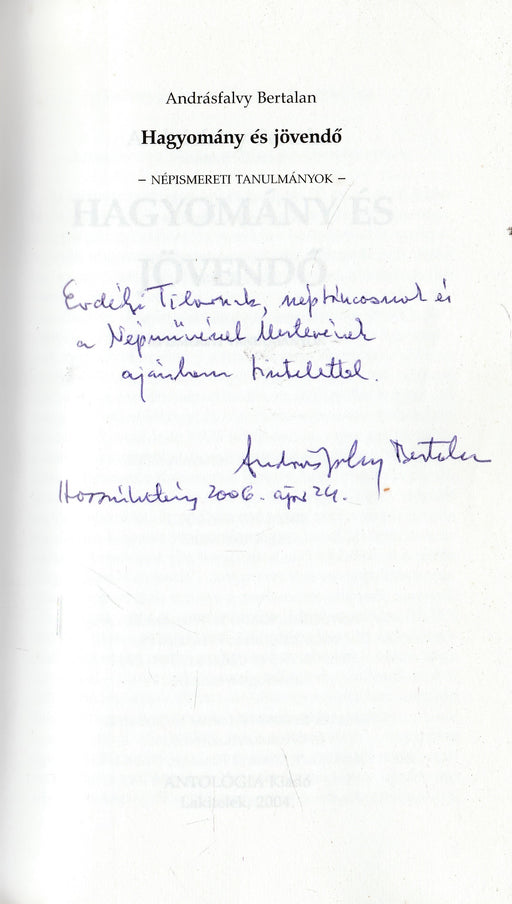 Andrásfalvy Bertalan
Hagyomány és jövendő
– NÉPISMERETI TANULMÁNYOK –
HAGYOMÁNY ÉS
JÖVENDŐ
Erdélyi Tibornak, néptáncosnak és
a Népművészet Mesterének
ajánlom tisztelettel.
Andrásfalvy Bertalan
Hosszúhetény 2006. ápr 24.
ANTOLÓGIA Kiadó
Lakitelek, 2004.